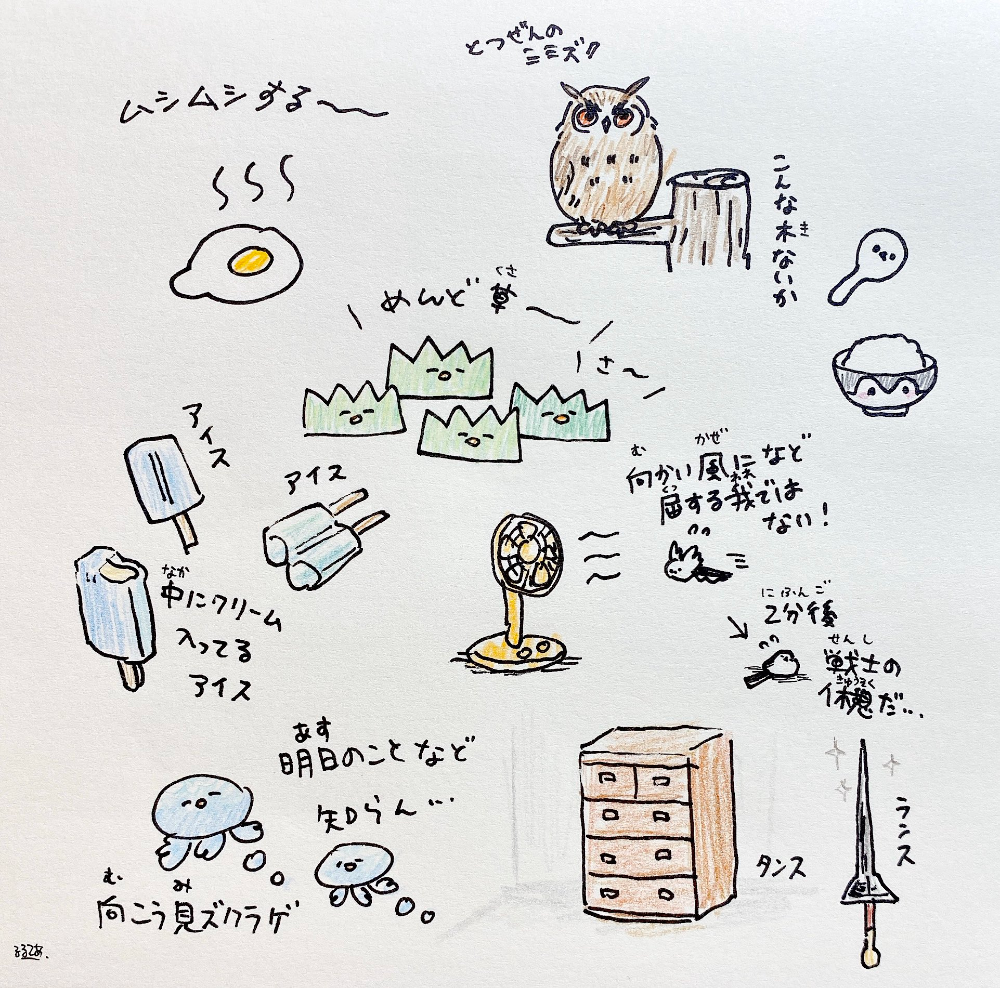 とつぜんの
ニミズク
ムシムシする〜
こんな木ないか
き
めんど草〜
くさ
さ〜
アイス
アイス
中にクリーム
なか
入ってる
アイス
向かい風になど
む
かぜ
屈する我では
くっ
われ
ない!
2分後
にふんご
戦士の
せんし
休憩だ…
きゅうそく
明日のことなど
あす
知らん…
向こう見ズクラゲ
む
み
タンス
ランス